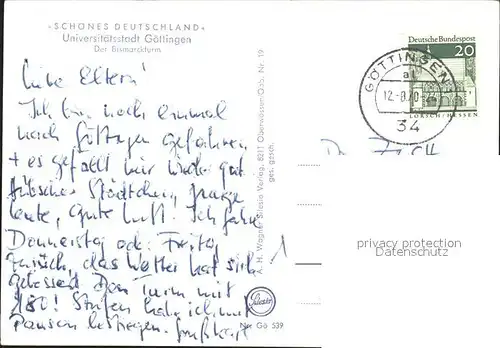 »SCHÖNES DEUTSCHLAND«
Universitätsstadt Göttingen
Der Bismarckturm
Liebe Eltern!
Ich bin noch einmal
nach Göttingen gefahren,
+ es gefällt mir wieder gut
hübsches Städtchen, junge
Leute, gute Luft. Ich fahre
Donnerstag od. Freitag
zurück, das Wetter hat sich
gebessert. Den Turm mit
Stufen habe ich mit
Pausen bestiegen.
A. H. Wagner Silesia Verlag, 8211 Oberwössen/Obb. Nr. 19
ges. gesch.
Silesia
Nr. Gö 539
Deutsche Bundespost
20
LORSCH/HESSEN
GÖTTINGEN
34
privacy protection
Datenschutz